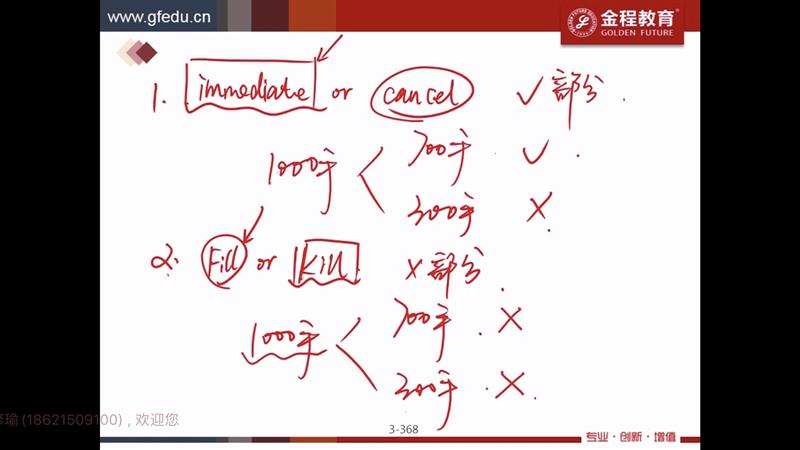 www.gfedu.cn
金程教育
GOLDEN FUTURE
1. immediate or cancel ✓部分.
1000手 < 700手 ✓.
300手 X.
2. Fill or Kill X部分.
1000手 < 700手. X
300手. X.
瑜(18621509100)，欢迎您
3-368
专业·创新·增值